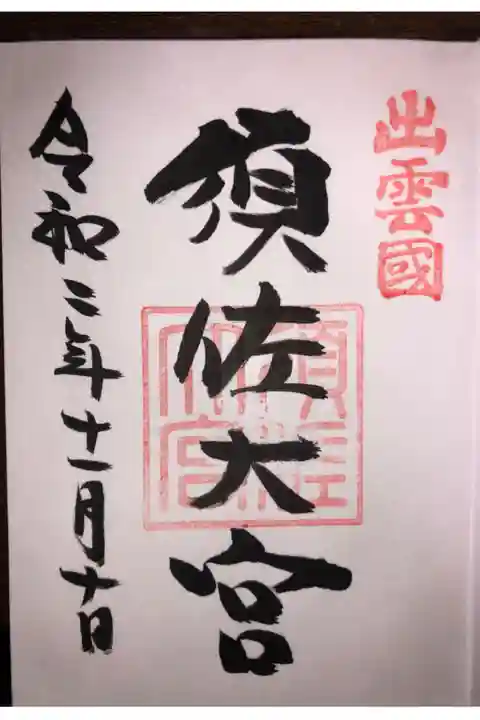 出雲國
須佐大宮
須佐大宮
令和二年十一月十日